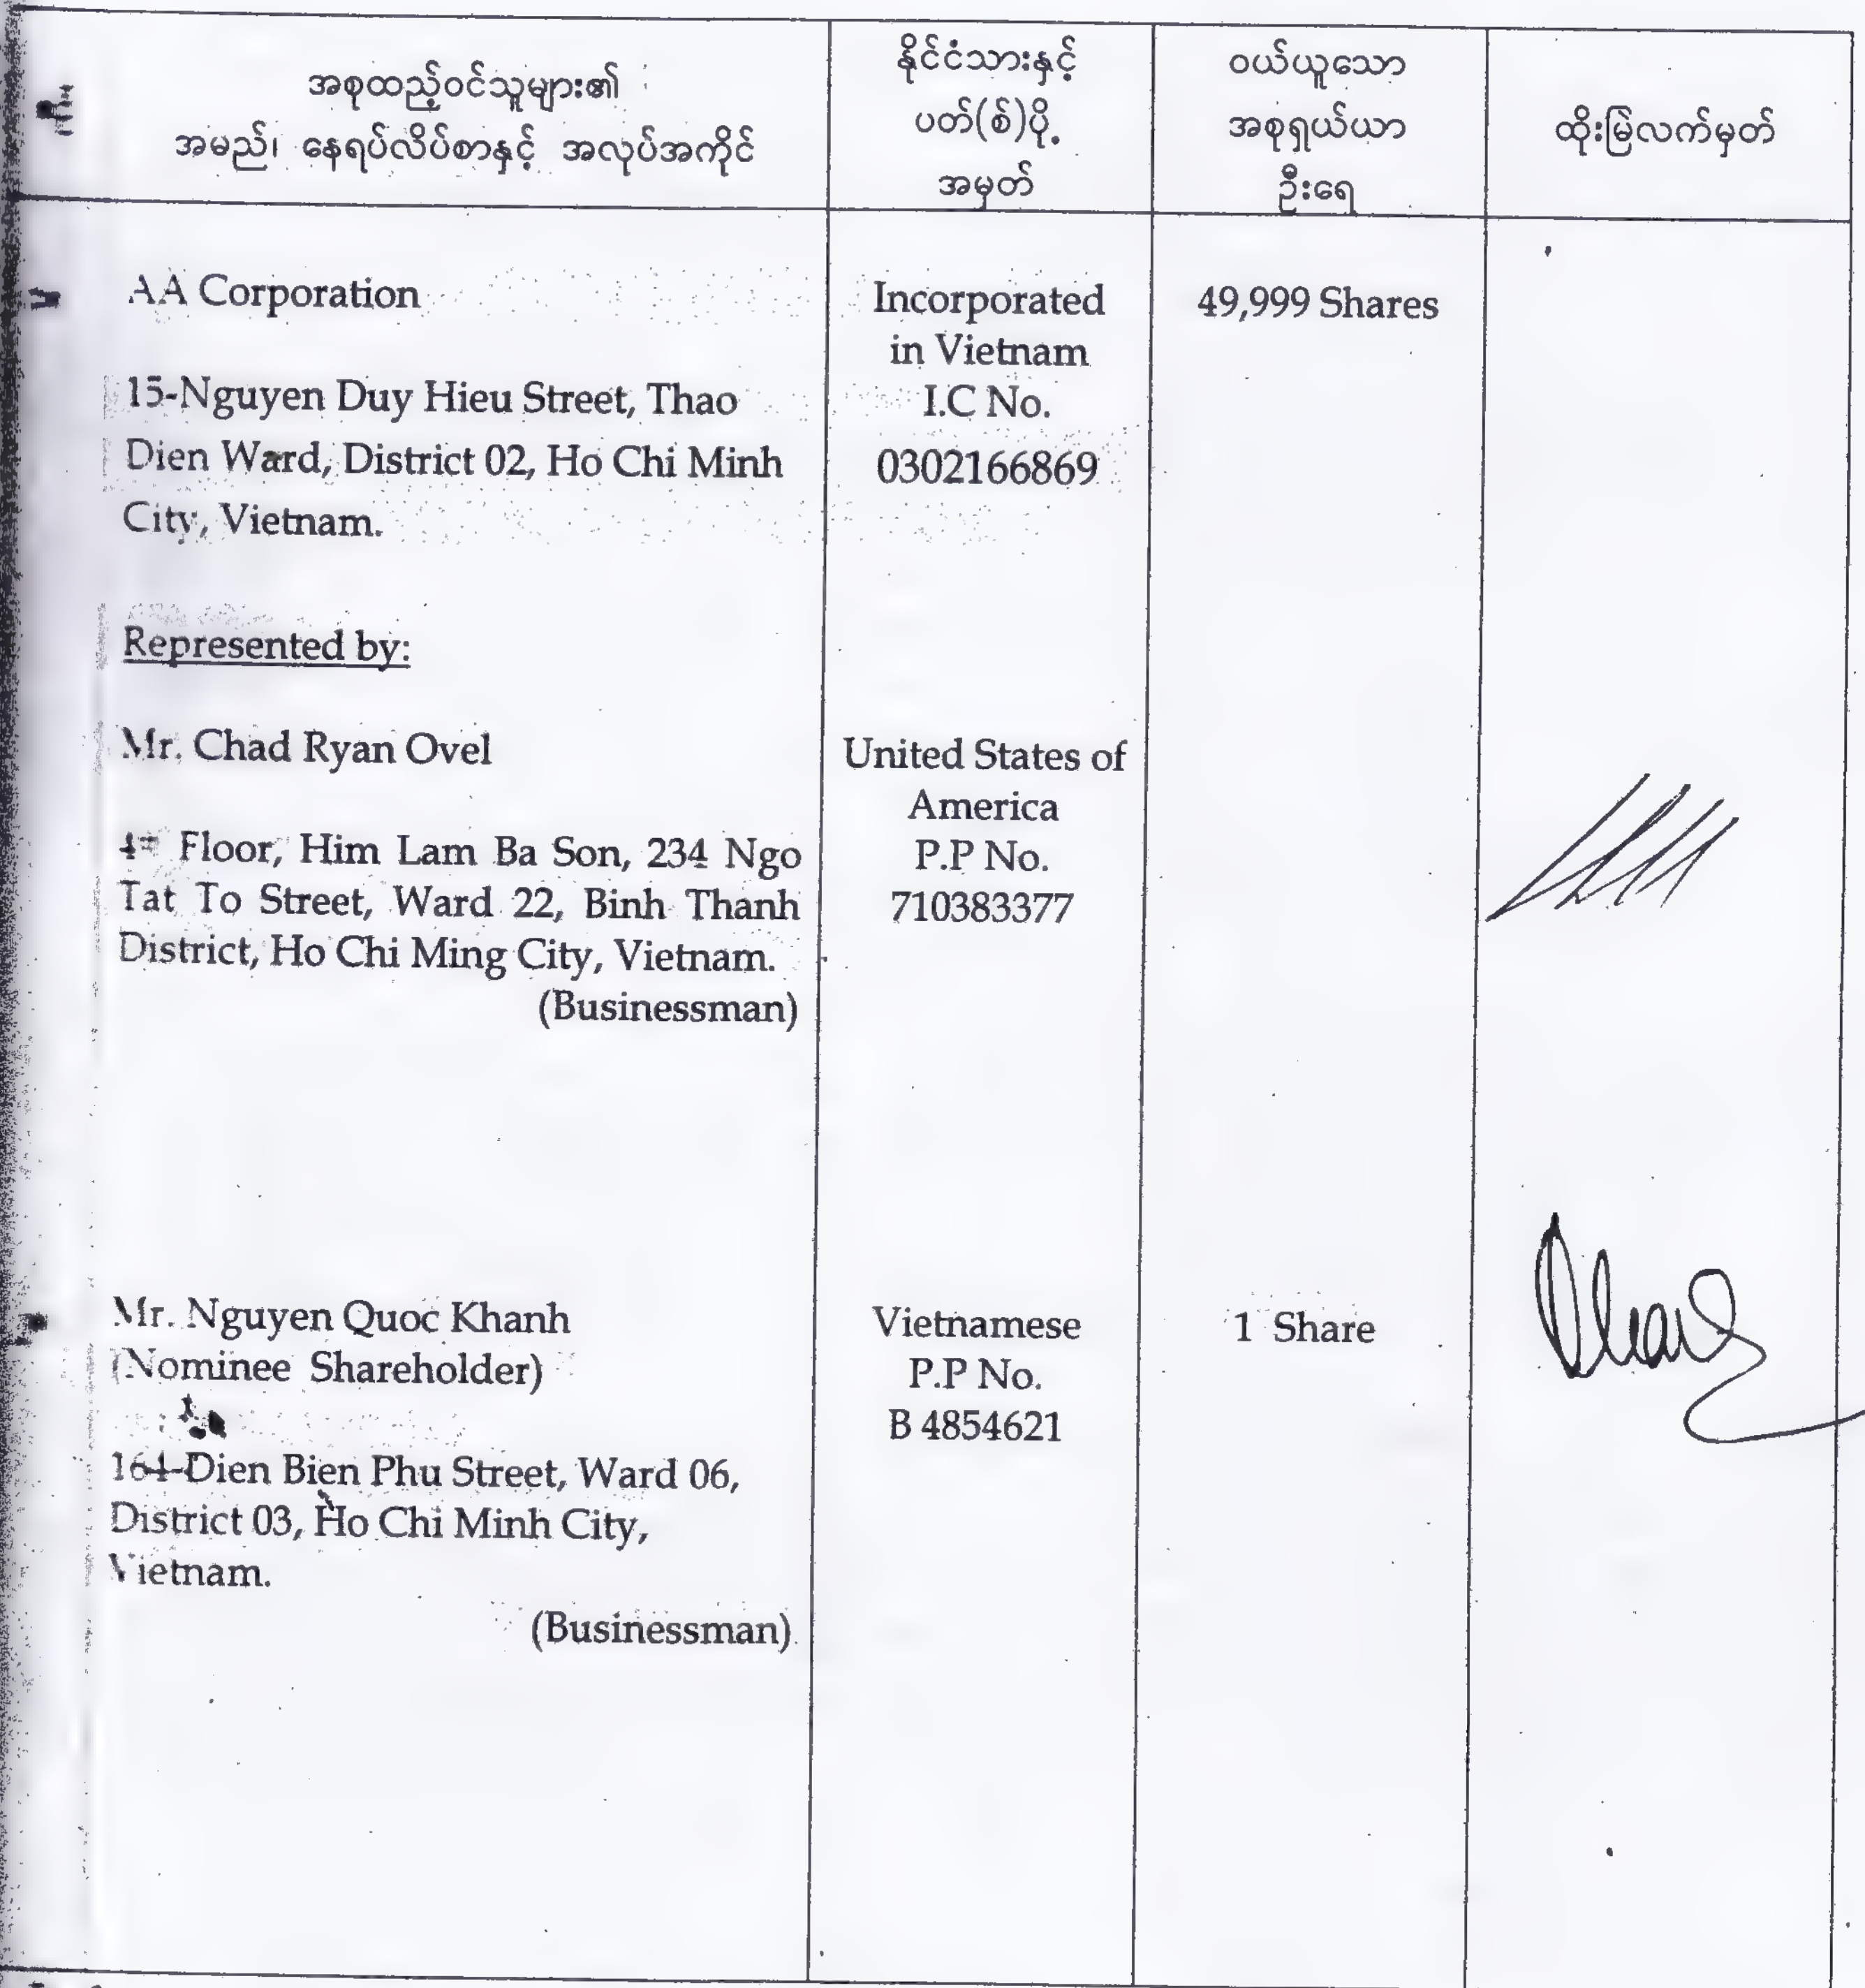 အစုထည့်ဝင်သူများ၏
အမည်၊ နေရပ်လိပ်စာနှင့် အလုပ်အကိုင်
နိုင်ငံသားနှင့်
ပတ်(စ်)ပို့
အမှတ်
ဝယ်ယူသော
အစုရှယ်ယာ
ဦးရေ
ထိုးမြဲလက်မှတ်
AA Corporation
15-Nguyen Duy Hieu Street, Thao
Dien Ward, District 02, Ho Chi Minh
City, Vietnam.
Incorporated
in Vietnam
I.C No.
0302166869
49,999 Shares
Represented by:
Mr. Chad Ryan Ovel
4th Floor, Him Lam Ba Son, 234 Ngo
Tat To Street, Ward 22, Binh Thanh
District, Ho Chi Ming City, Vietnam.
(Businessman)
United States of
America
P.P No.
710383377
Mr. Nguyen Quoc Khanh
(Nominee Shareholder)
164-Dien Bien Phu Street, Ward 06,
District 03, Ho Chi Minh City,
Vietnam.
(Businessman)
Vietnamese
P.P No.
B 4854621
1 Share